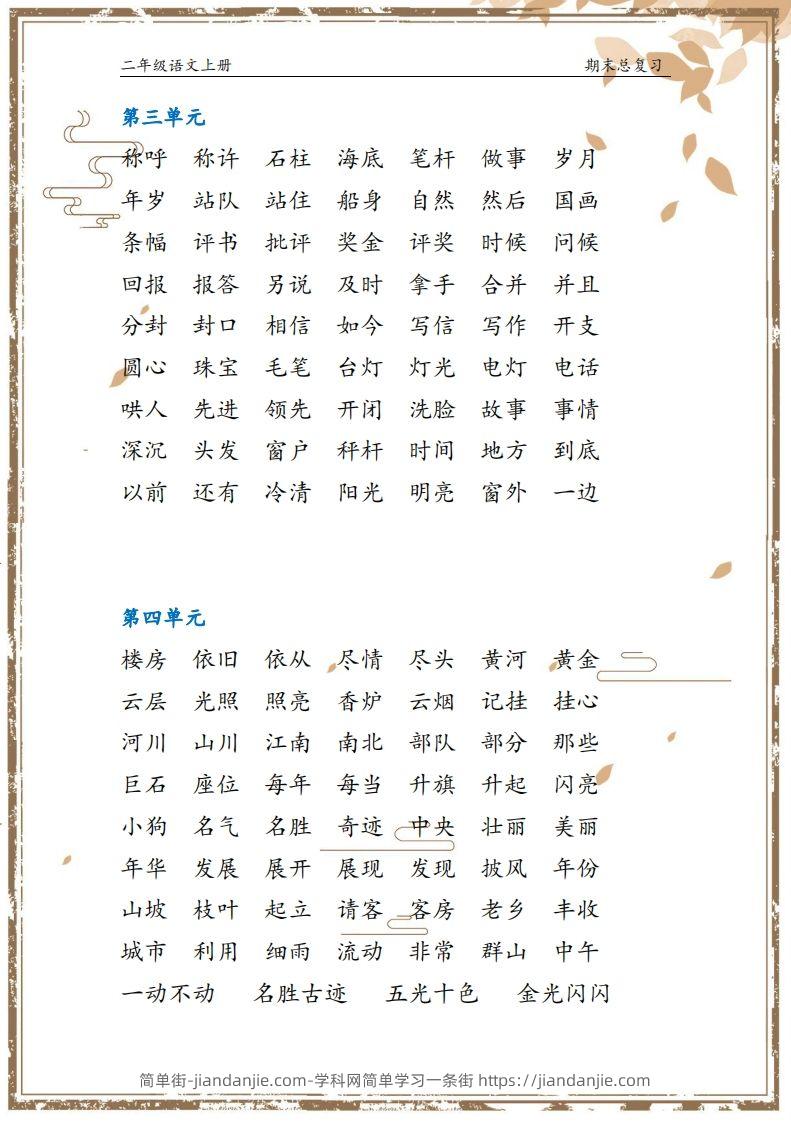 二年级语文上册 期末总复习
第三单元
称呼 称许 石柱 海底 笔杆 做事 岁月
年岁 站队 站住 船身 自然 然后 国画
条幅 评书 批评 奖金 评奖 时候 问候
回报 报答 另说 及时 拿手 合并 并且
分封 封口 相信 如今 写信 写作 开支
圆心 珠宝 毛笔 台灯 灯光 电灯 电话
哄人 先进 领先 开闭 洗脸 故事 事情
深沉 头发 窗户 秤杆 时间 地方 到底
以前 还有 冷清 阳光 明亮 窗外 一边
第四单元
楼房 依旧 依从 尽情 尽头 黄河 黄金
云层 光照 照亮 香炉 云烟 记挂 挂心
河川 山川 江南 南北 部队 部分 那些
巨石 座位 每年 每当 升旗 升起 闪亮
小狗 名气 名胜 奇迹 中央 壮丽 美丽
年华 发展 展开 展现 发现 披风 年份
山坡 枝叶 起立 请客 客房 老乡 丰收
城市 利用 细雨 流动 非常 群山 中午
一动不动 名胜古迹 五光十色 金光闪闪
简单街-jiandanjie.com-学科网简单学习一条街 https://jiandanjie.com